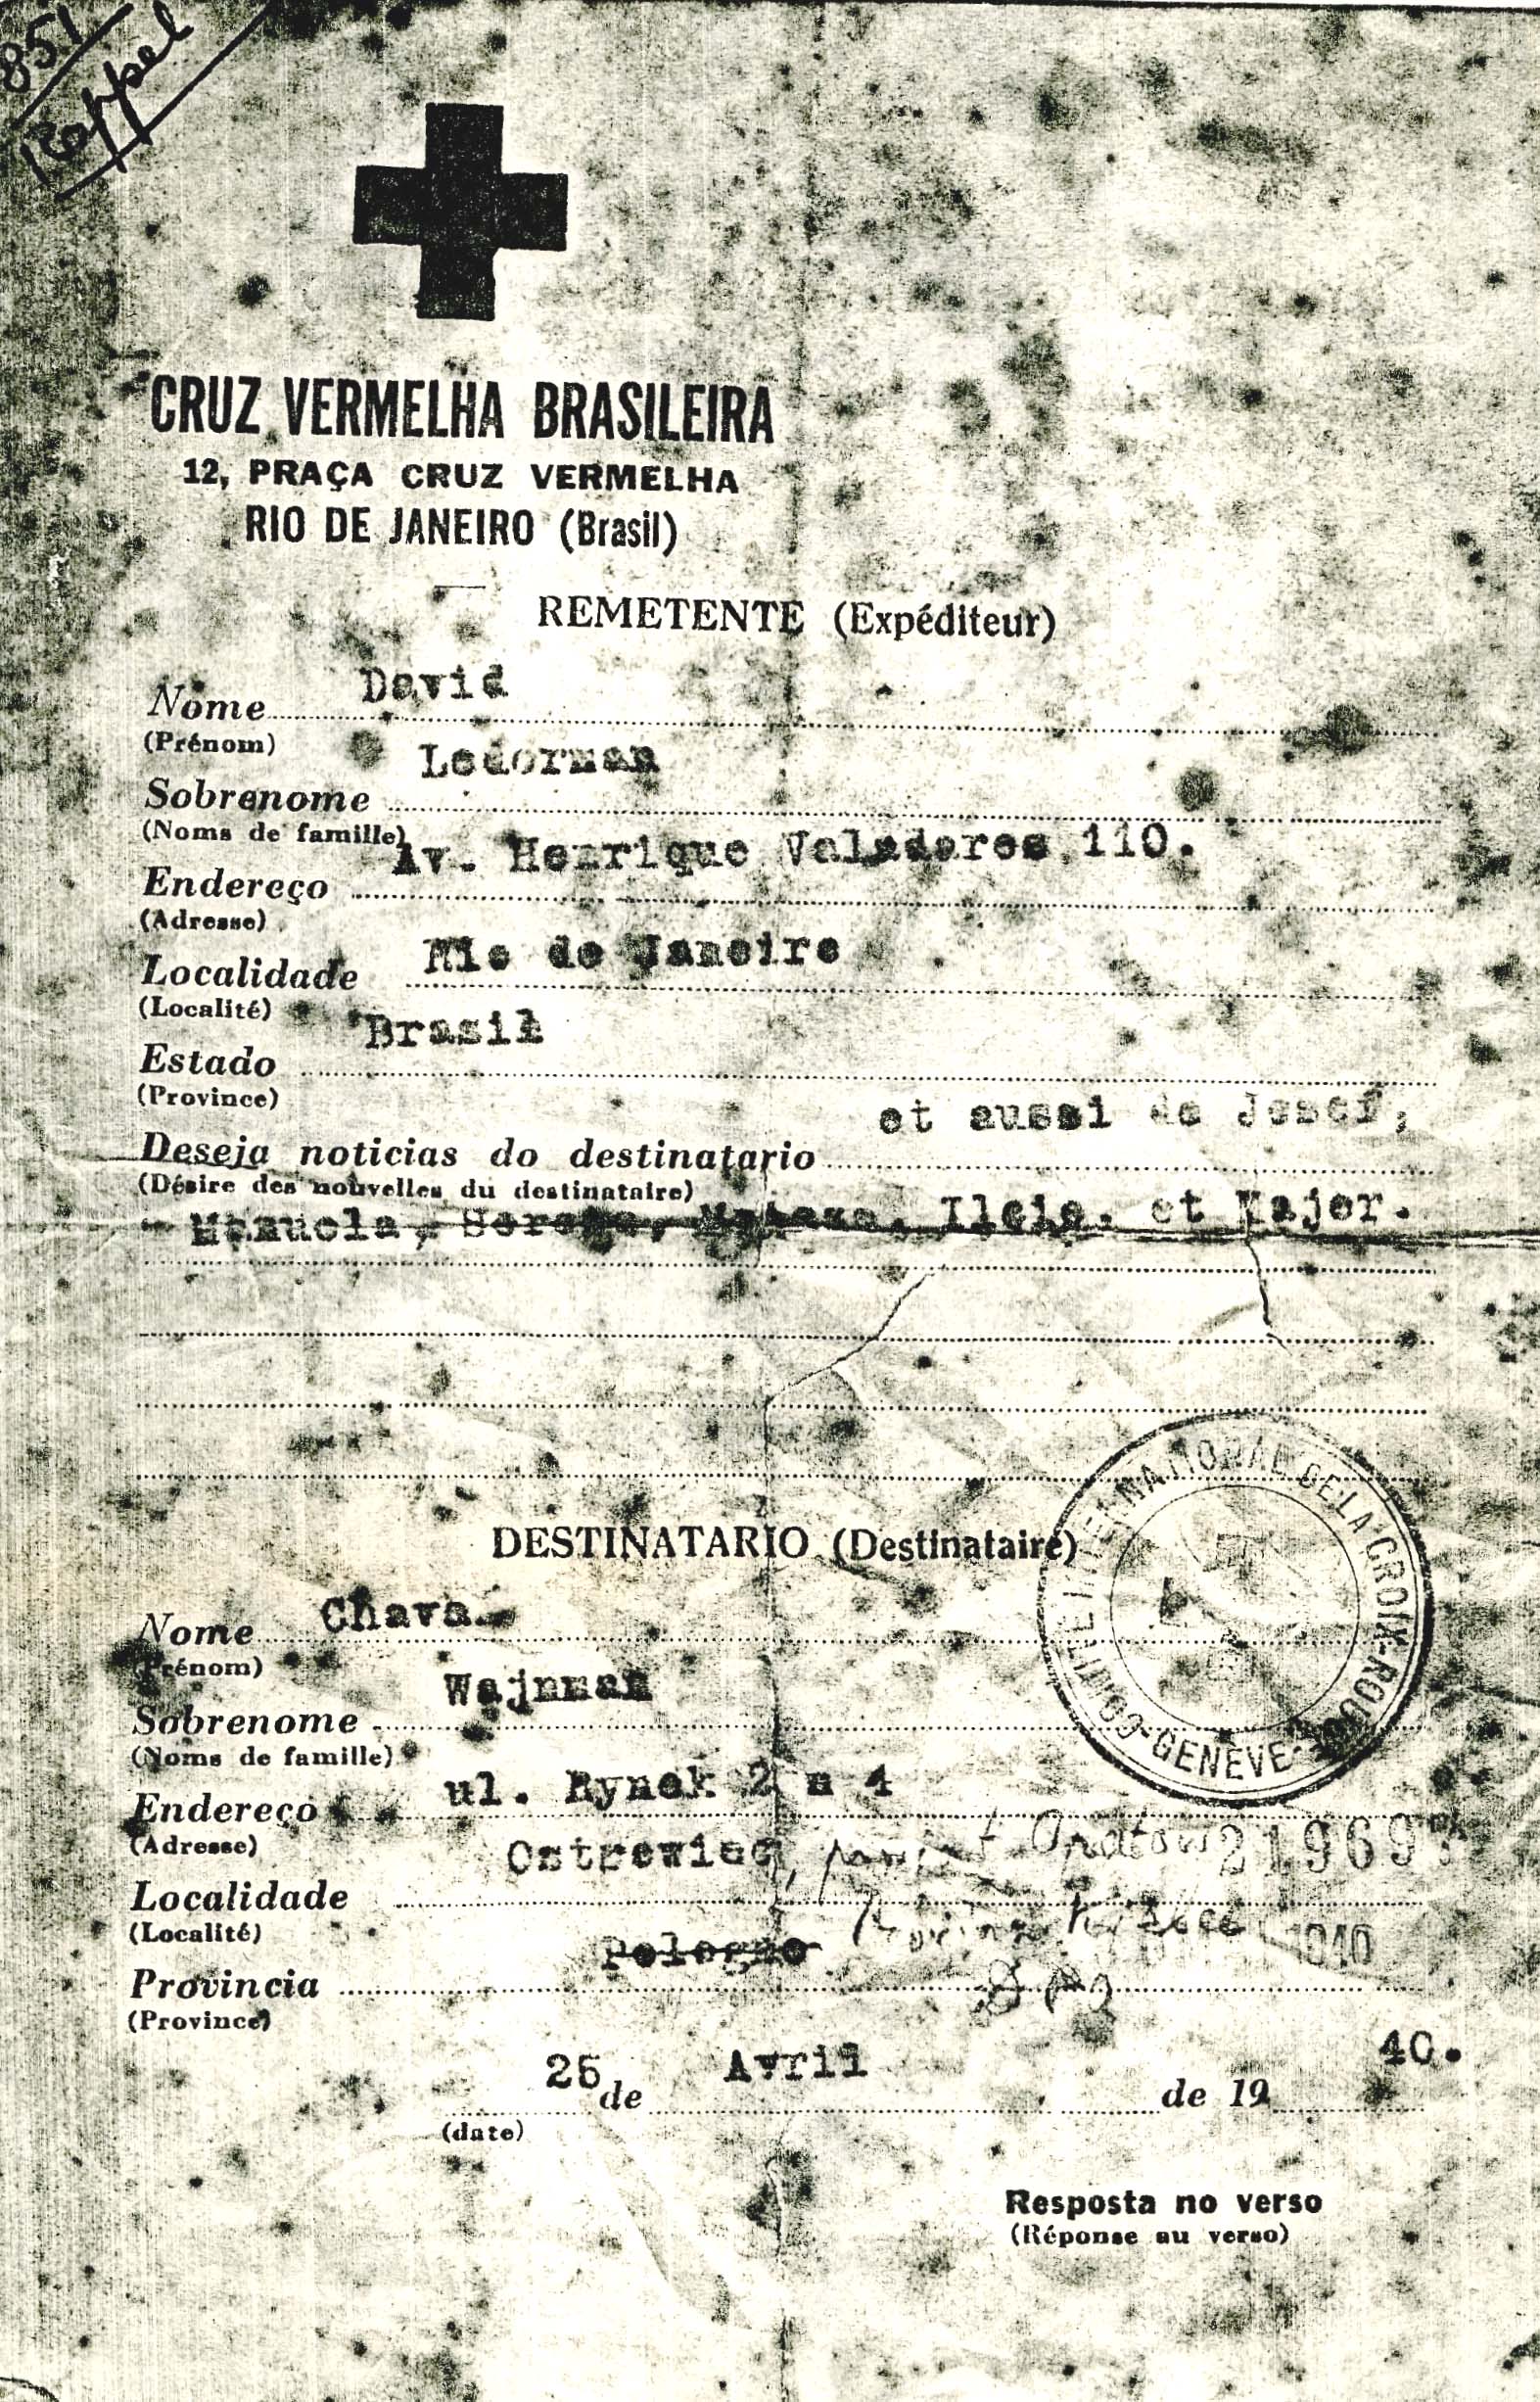 851
Rappel
CRUZ VERMELHA BRASILEIRA
12, PRAÇA CRUZ VERMELHA
RIO DE JANEIRO (Brasil)
REMETENTE (Expéditeur)
Nome David
(Prénom)
Sobrenome Lederman
(Noms de famille)
Endereço Av. Henrique Valadares 110.
(Adresse)
Localidade Rio de Janeiro
(Localité)
Estado Brasil
(Province)
Deseja noticias do destinatario et aussi de Josef,
(Désire des nouvelles du destinataire)
et Majer.
DESTINATARIO (Destinataire)
COMITÉ INTERNATIONAL DE LA CROIX-ROUGE-GENÈVE-
Nome Chava
(Prénom)
Sobrenome Wajnman
(Noms de famille)
Endereço ul. Rynek 2 m 4
(Adresse)
Localidade Ostrowiec, powiat Opatow 21969
(Localité)
Provincia Pologne 1940
(Province)
25 de Avril de 19 40.
(date)
Resposta no verso
(Réponse au verso)